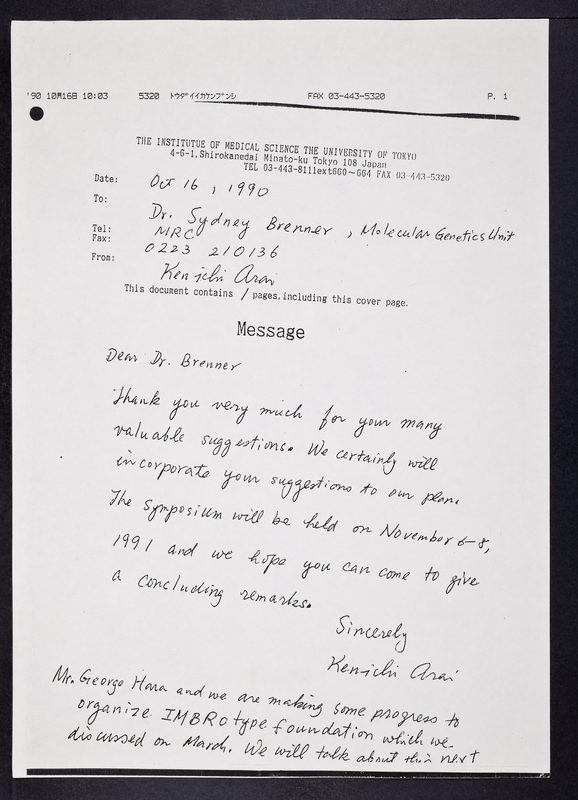 '90 10月16日 10:03 5320 トウダイイカケンブンシ FAX 03-443-5320 P. 1
THE INSTITUTUE OF MEDICAL SCIENCE THE UNIVERSITY OF TOKYO
4-6-1.Shirokanedai Minato-ku Tokyo 108 Japan
TEL 03-443-8111ext660~664 FAX 03-443-5320
Date: Oct 16, 1990
To: Dr. Sydney Brenner, Molecular Genetics Unit
MRC
Tel:
Fax: 0223 210136
From: Ken-ichi Arai
This document contains 1 pages, including this cover page.
Message
Dear Dr. Brenner
Thank you very much for your many
valuable suggestions. We certainly will
incorporate your suggestions to our plan.
The Symposium will be held on November 6-8,
1991 and we hope you can come to give
a concluding remarks.
Sincerely
Ken-ichi Arai
Mr. George Hara and we are making some progress to
organize IMBRO type foundation which we
discussed on March. We will talk about this next